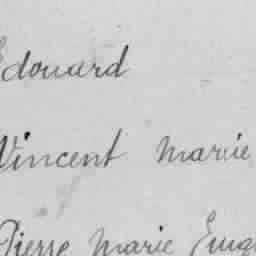 Edouard
Vincent Marie
Pierre Marie